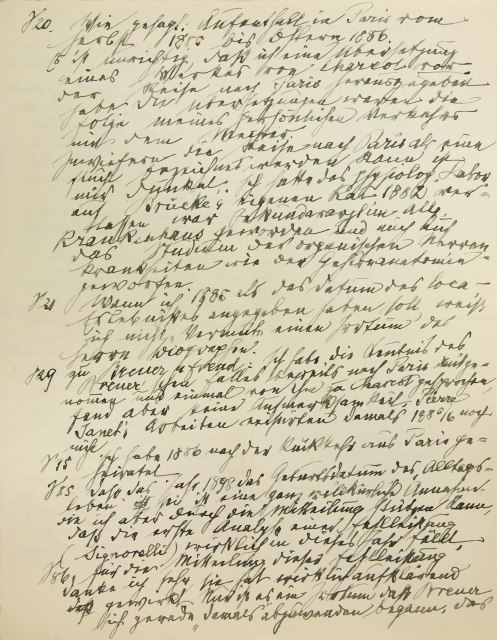 V20. Wie gesagt: Aufenthalt in Paris vom
Herbst 1885 bis Ostern 1886.
Es ist unrichtig, daß ich eine Übersetzung
eines Werkes von Charcot vor
der Reise nach Paris herausgegeben
habe. Die Übersetzungen waren die
Folge meines persönlichen Verkehrs
mit dem Meister.
Inwiefern die Reise nach Paris als eine
Flucht bezeichnet werden kann ist
mir dunkel. Ich hatte das physiolog. Labor
auf Brücke's eigenen Rat 1882 ver-
lassen war Sekundararzt im Allg.
Krankenhaus geworden und mich auf
das Studium der organischen Nerven
krankheiten wie der Gehirnanatomie
geworfen.
V21 Wenn ich 1885 als das Datum des Coca-
Erlebnisses angegeben haben soll weiß
ich nicht. Vermute einen Irrtum des
Herrn Biographen.
V29 zu Breuer u Freud. Ich habe die Kenntnis des
Breuer'schen Falles bereits nach Paris mitge-
nommen und einmal von ihm zu Charcot gesprochen
fand aber keine Aufmerksamkeit. Pierre
Janet's Arbeiten existirten damals 1885/6 noch
nicht.
V75 Ich habe 1886 nach der Rückkehr aus Paris ge-
heiratet.
V85 Daß das Jahr 1898 das Geburtsdatum des Alltags-
leben sei ist eine ganz willkürliche Annahme
die ich aber durch die Mitteilung stützen kann
daß die erste Analyse einer Fehlleistung
(Signorelli) wirklich in dieses Jahr fällt.
V86 Für die Mitteilung dieser Fehlleistung
danke ich sehr, sie hat wirklich aufklärend
gewirkt. Nur ist es ein Irrtum daß Breuer
sich gerade damals abzuwenden begann, das